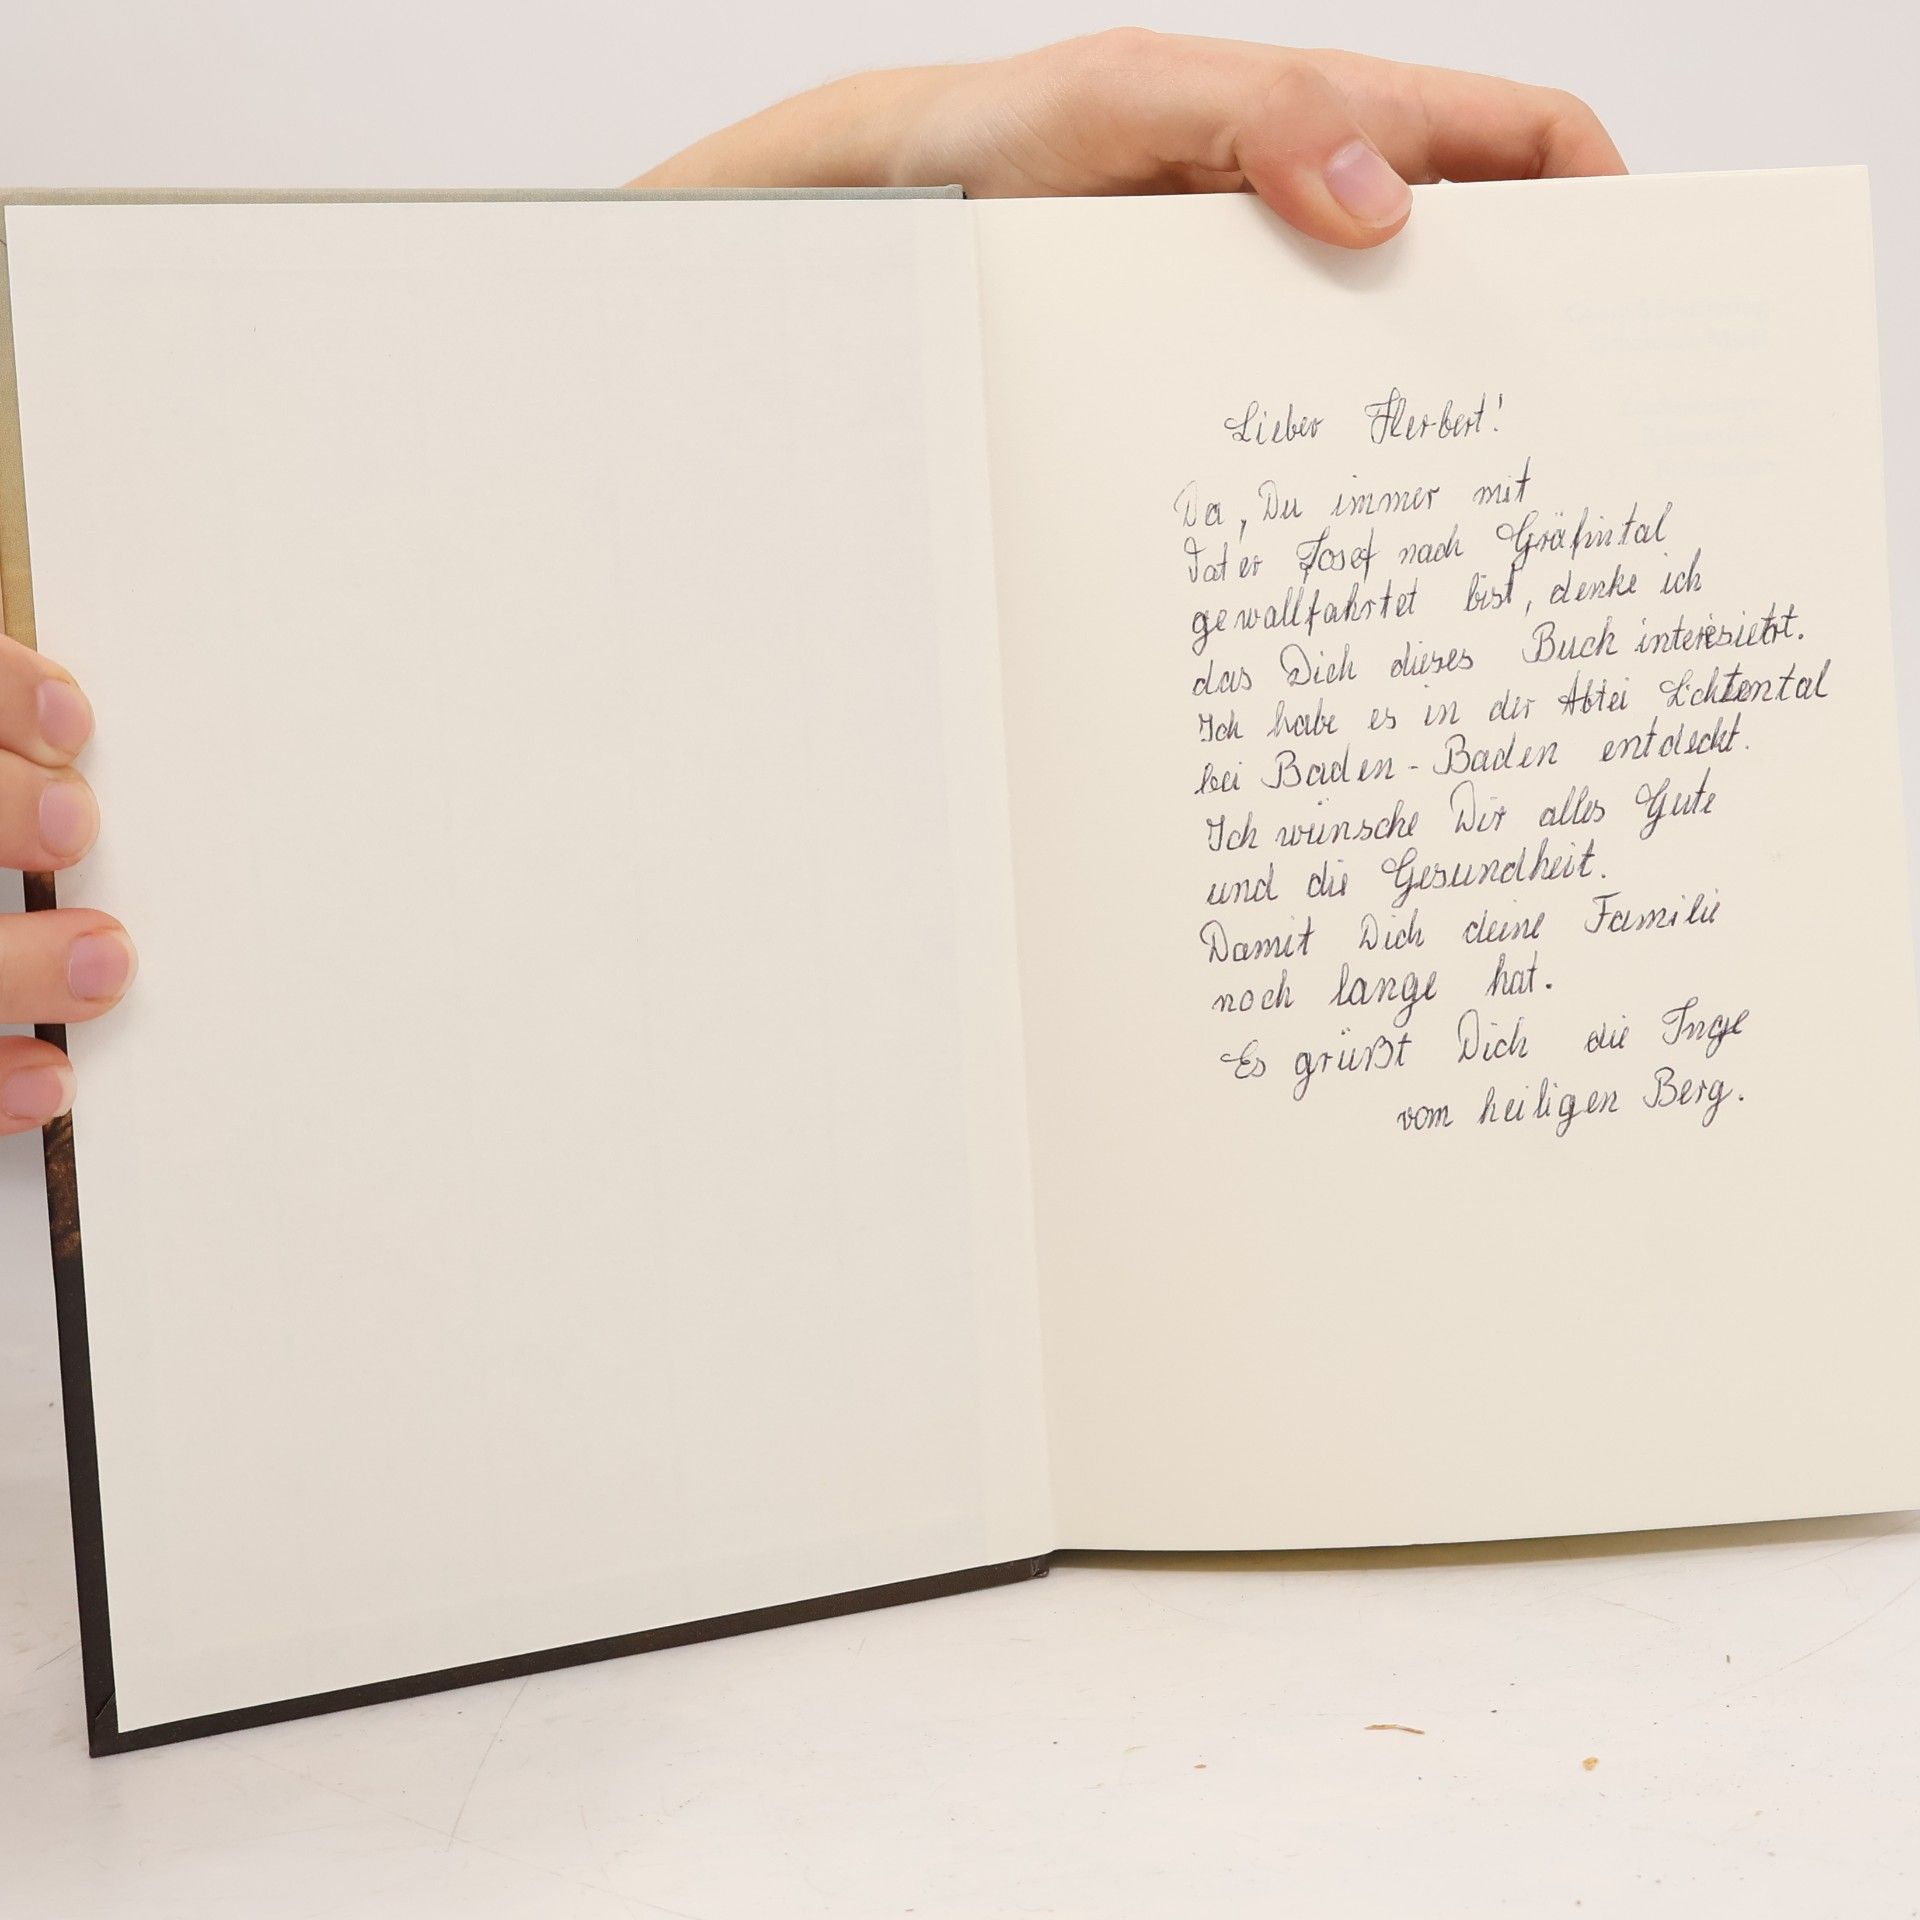 Lieber Herbert!
Da, Du immer mit
Pater Josef nach Gräfintal
gewallfahrtet bist, denke ich
das Dich dieses Buch interesiert.
Ich habe es in der Abtei Lichtental
bei Baden-Baden entdeckt.
Ich wünsche Dir alles Gute
und die Gesundheit.
Damit Dich deine Familie
noch lange hat.
Es grüßt Dich die Inge
vom heiligen Berg.